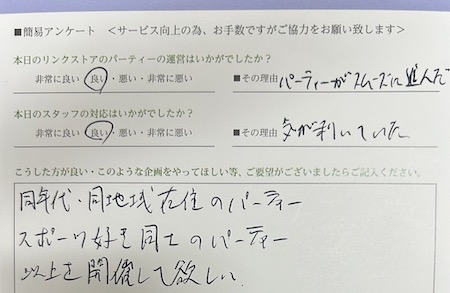 ■簡易アンケート ＜サービス向上の為、お手数ですがご協力をお願い致します＞
本日のリンクストアのパーティーの運営はいかがでしたか？
非常に良い・良い・悪い・非常に悪い ■その理由 パーティーがスムーズに進んだ
本日のスタッフの対応はいかがでしたか？
非常に良い・良い・悪い・非常に悪い ■その理由 気が利いていた
こうした方が良い・このような企画をやってほしい等、ご要望がございましたらご記入ください。
同年代・同地域在住のパーティー
スポーツ好き同士のパーティー
以上を開催して欲しい